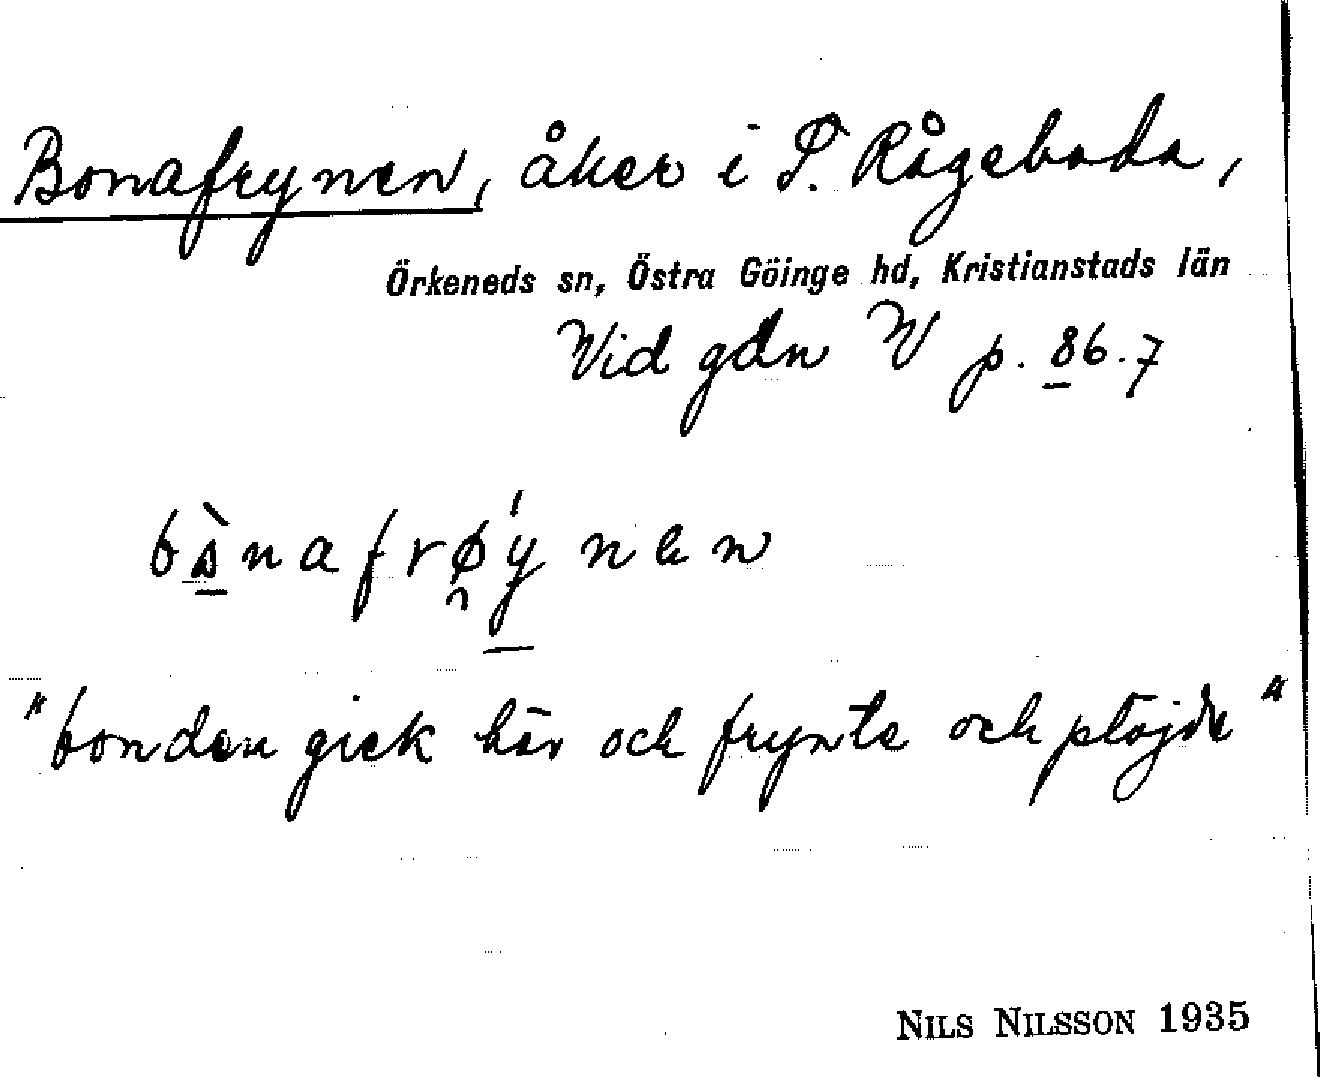 Bonafrynen, åker i S. Rågeboda,
Örkeneds sn, Östra Göinge hd, Kristianstads län
Vid gdn W p. 86.7
bånafrøynen
"bonden gick här och frynte och plöjde"
NILS NILSSON 1935